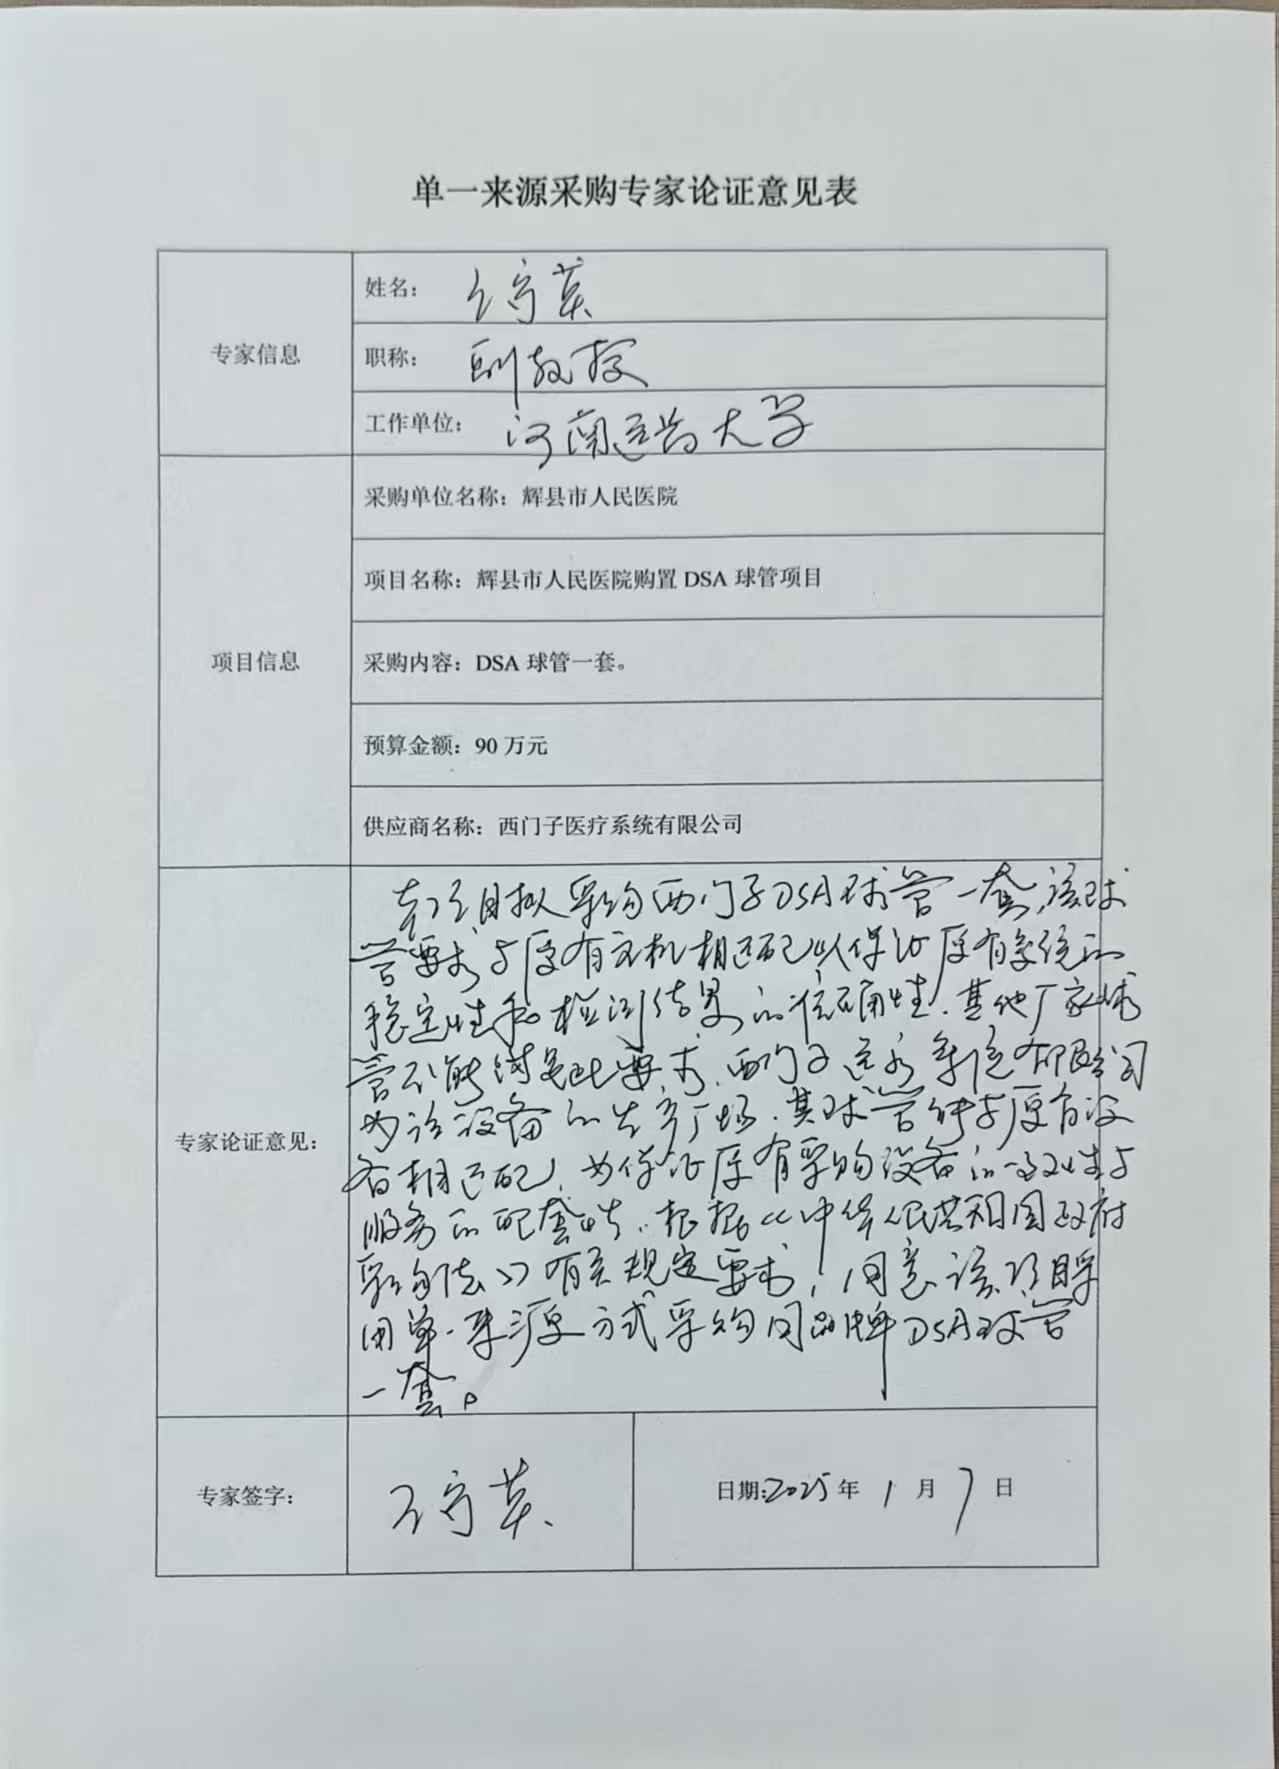 单一来源采购专家论证意见表
专家信息
姓名：
职称： 副教授
工作单位： 河南医药大学
项目信息
采购单位名称：辉县市人民医院
项目名称：辉县市人民医院购置 DSA 球管项目
采购内容：DSA 球管一套。
预算金额：90 万元
供应商名称：西门子医疗系统有限公司
专家论证意见：
本项目拟采购西门子DSA球管一套，该球
管要求与原有主机相匹配以保证原有系统的
稳定性和检测结果的准确性. 其他厂家球
管不能满足此要求. 西门子医疗系统有限公司
为该设备的生产厂场. 其球管能与原有设
备相匹配, 为保证原有采购设备的一致性与
服务的配套性. 根据《中华人民共和国政府
采购法》有关规定要求, 同意该项目采
用单一来源方式采购同品牌DSA球管
一套。
专家签字：
日期:2025 年 1 月 7 日